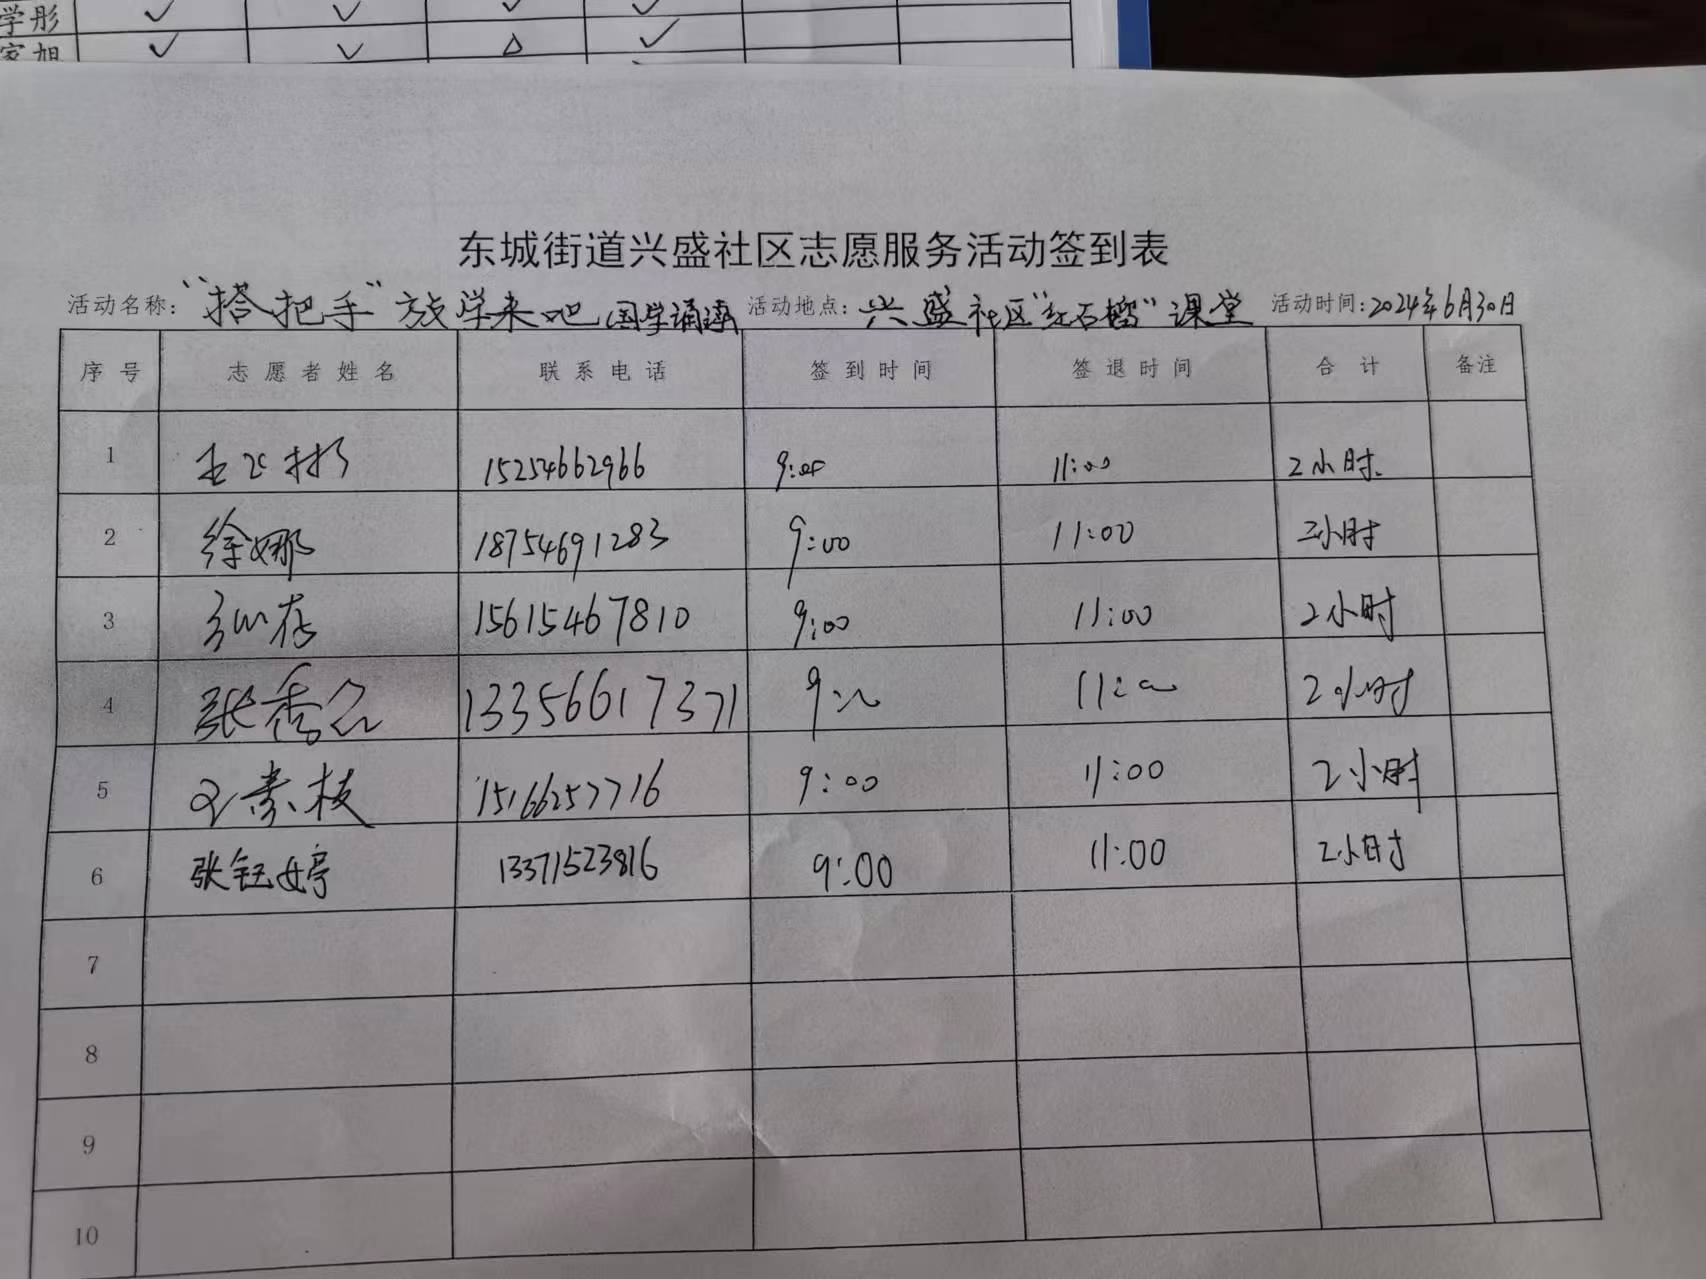 学彤 ✓ ✓ ✓ ✓
家旭 ✓ ✓ △ ✓
东城街道兴盛社区志愿服务活动签到表
活动名称：“搭把手”放学来吧国学诵读 活动地点：兴盛社区“红石榴”课堂 活动时间：2024年6月30日
序号 志愿者姓名 联系电话 签到时间 签退时间 合计 备注
1 15254662966 9:00 11:00 2小时.
2 徐娜 18754691283 9:00 11:00 2小时
3 15615467810 9:00 11:00 2小时
4 张秀 13356617371 9:00 11:00 2小时
5 王素枝 15166257716 9:00 11:00 2小时
6 张钰婷 13371523816 9:00 11:00 2小时
7
8
9
10